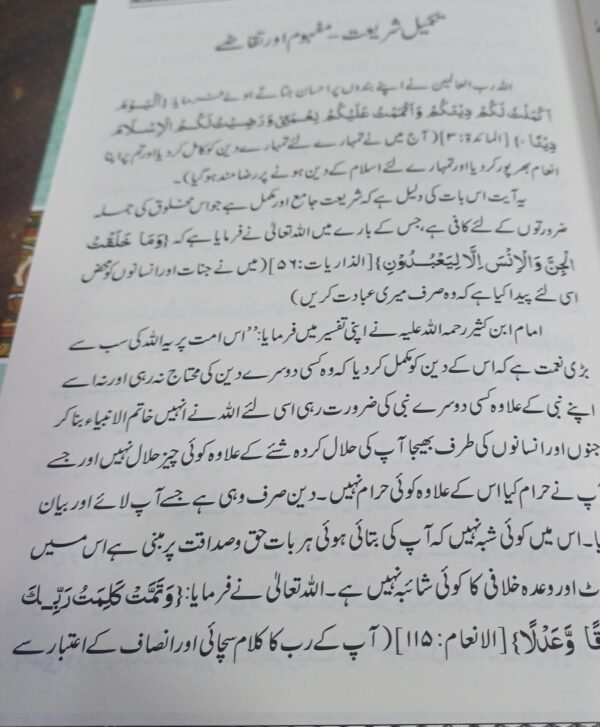 تکمیل شریعت - مفہوم اور تقاضے
اللہ رب العالمین نے اپنے بندوں پر احسان جتاتے ہوئے فرمایا: {اَلْیَوْمَ
اَکْمَلْتُ لَکُمْ دِیْنَکُمْ وَاَتْمَمْتُ عَلَیْکُمْ نِعْمَتِیْ وَرَضِیْتُ لَکُمُ الْاِسْلَامَ
دِیْنًا ۰} [المائدۃ:۳] (آج میں نے تمہارے لئے تمہارے دین کو کامل کر دیا اور تم پر اپنا
انعام بھرپور کر دیا اور تمہارے لئے اسلام کے دین ہونے پر رضامند ہو گیا)۔
یہ آیت اس بات کی دلیل ہے کہ شریعت جامع اور مکمل ہے جو اس مخلوق کی جملہ
ضرورتوں کے لئے کافی ہے، جس کے بارے میں اللہ تعالیٰ نے فرمایا ہے کہ {وَمَا خَلَقْتُ
الْجِنَّ وَالْاِنْسَ اِلَّا لِیَعْبُدُوْنِ} [الذاریات:۵۶] (میں نے جنات اور انسانوں کو محض
اسی لئے پیدا کیا ہے کہ وہ صرف میری عبادت کریں)
امام ابن کثیر رحمہ اللہ علیہ نے اپنی تفسیر میں فرمایا: ’’اس امت پر یہ اللہ کی سب سے
بڑی نعمت ہے کہ اس کے دین کو مکمل کر دیا کہ وہ کسی دوسرے دین کی محتاج نہ رہی اور نہ اسے
اپنے نبی کے علاوہ کسی دوسرے نبی کی ضرورت رہی اسی لئے اللہ نے انہیں خاتم الانبیاء بنا کر
جنوں اور انسانوں کی طرف بھیجا آپ کی حلال کردہ شئے کے علاوہ کوئی چیز حلال نہیں اور جسے
آپ نے حرام کیا اس کے علاوہ کوئی حرام نہیں۔ دین صرف وہی ہے جسے آپ لائے اور بیان
یا۔ اس میں کوئی شبہ نہیں کہ آپ کی بتائی ہوئی ہر بات حق و صداقت پر مبنی ہے اس میں
ٹ اور وعدہ خلافی کا کوئی شائبہ نہیں ہے۔ اللہ تعالیٰ نے فرمایا: {وَتَمَّتْ کَلِمَتُ رَبِّکَ
قًا وَّعَدْلًا} [الانعام:۱۱۵] (آپ کے رب کا کلام سچائی اور انصاف کے اعتبار سے